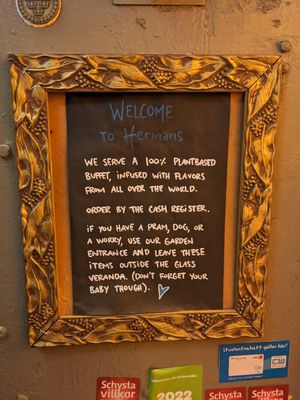 WELCOME
to Hermans
WE SERVE A 100% PLANTBASED
BUFFET, INFUSED WITH FLAVORS
FROM ALL OVER THE WORLD.
ORDER BY THE CASH REGISTER.
IF YOU HAVE A PRAM, DOG, OR
A WORRY, USE OUR GARDEN
ENTRANCE AND LEAVE THESE
ITEMS OUTSIDE THE GLASS
VERANDA. (DON'T FORGET YOUR
BABY THOUGH).
Studentrabatt gäller här!
Schysta
villkor
2022
Schysta
Schysta